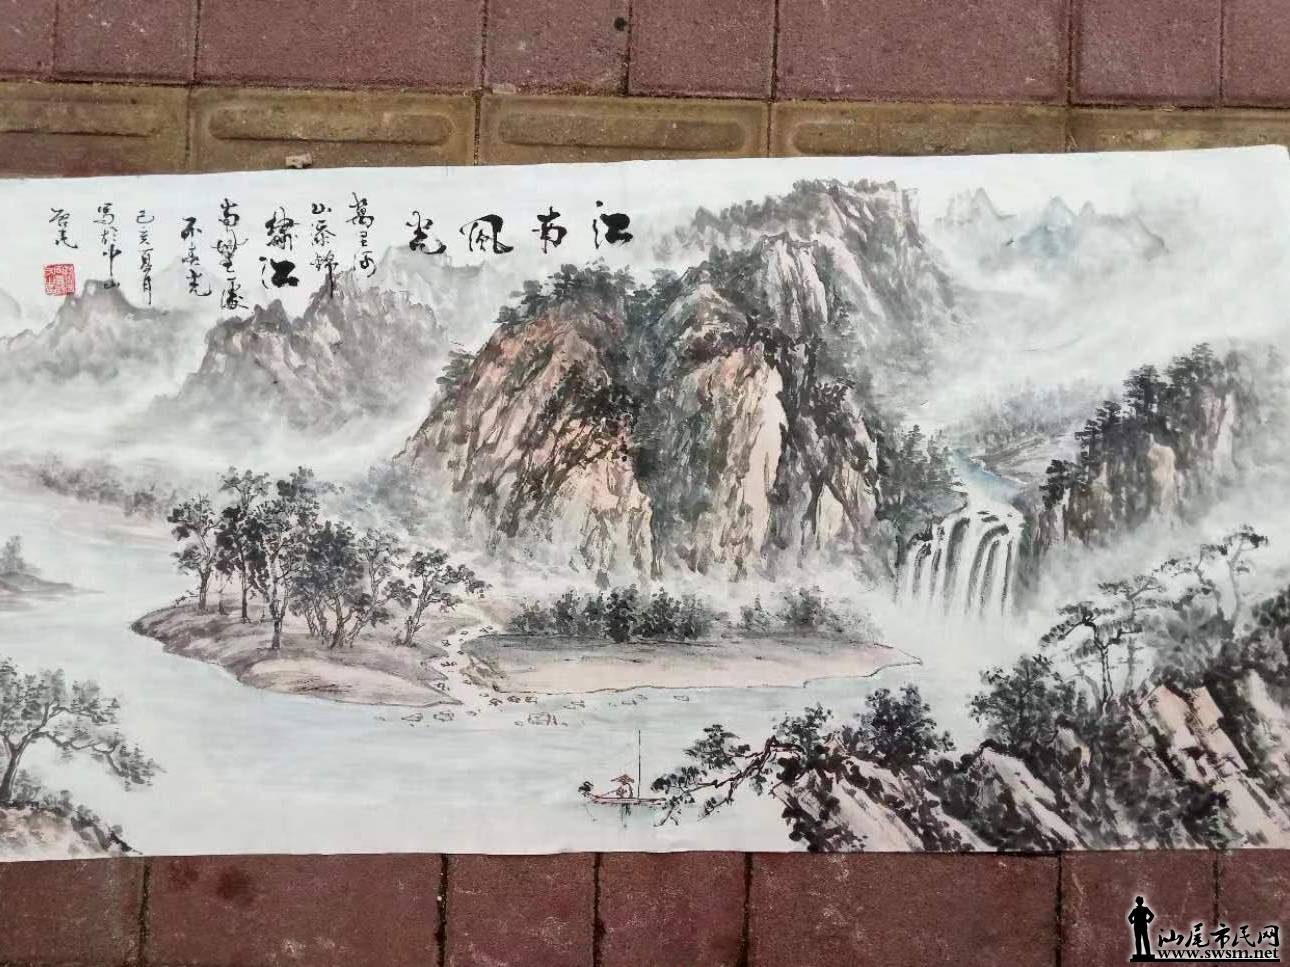 江南风光
萬里河
山添錦
繡江
南無處
不春光
己亥夏月
寫於中山
汕尾市民网
www.swsm.net